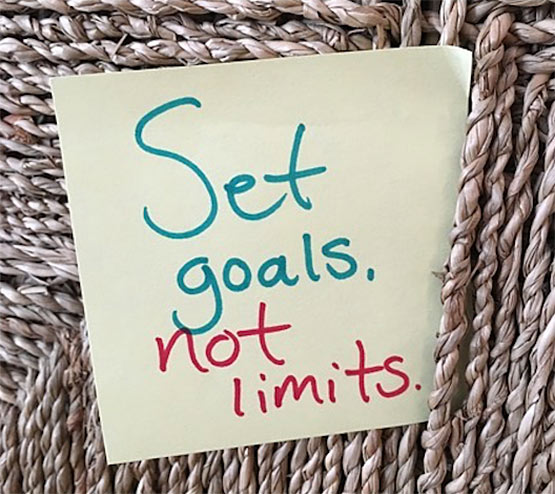 Set
goals.
not
limits.